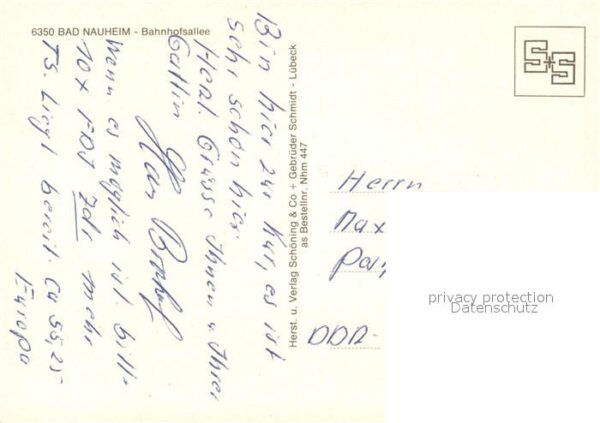 6350 BAD NAUHEIM - Bahnhofsallee
Bin hier zur Kur, es ist
sehr schön hier.
Herzl. Grüsse Ihnen u Ihrer
Gattin
Wenn es möglich ist. bitte
10x FDJ Zdr mehr
TS. liegt bereit. Ca 55,25
Europa
Herst. u. Verlag Schöning & Co + Gebrüder Schmidt - Lübeck
as Bestellnr. Nhm 447
S+S
Herrn
Max
DDR-
privacy protection
Datenschutz